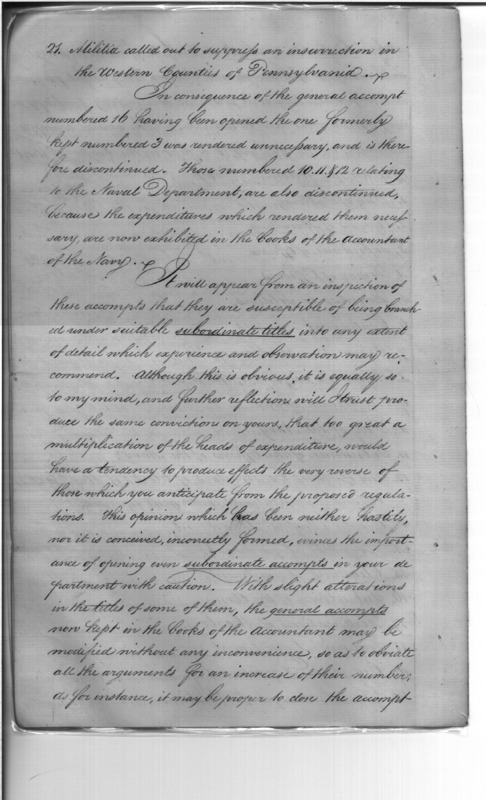 21. Militia called out to suppress an insurrection in
the Western Counties of Pennsylvania.
In consequence of the general accompt
numbered 16 having been opened the one formerly
kept numbered 3 was rendered unnecessary, and is there-
fore discontinued. Those numbered 10. 11. & 12 relating
to the Naval Department, are also discontinued,
because the expenditures which rendered them neces-
sary, are now exhibited in the books of the Accountant
of the Navy.
It will appear from an inspection of
these accompts that they are susceptible of being branch-
ed under suitable subordinate titles into any extent
of detail which experience and observation may re-
commend. Although this is obvious, it is equally so
to my mind, and further reflection will I trust pro-
duce the same convictions on yours, that too great a
multiplication of the heads of expenditure, would
have a tendency to produce effects the very reverse of
those which you anticipate from the proposed regula-
tions. This opinion which has been neither hastily,
nor it is conceived, incorrectly formed, evinces the import-
ance of opening even subordinate accompts in your de
partment with caution. With slight alterations
in the titles of some of them, the general accompts
now kept in the books of the Accountant may be
modified without any inconvenience, so as to obviate
all the arguments for an increase of their number;
as for instance, it may be proper to close the accompt-